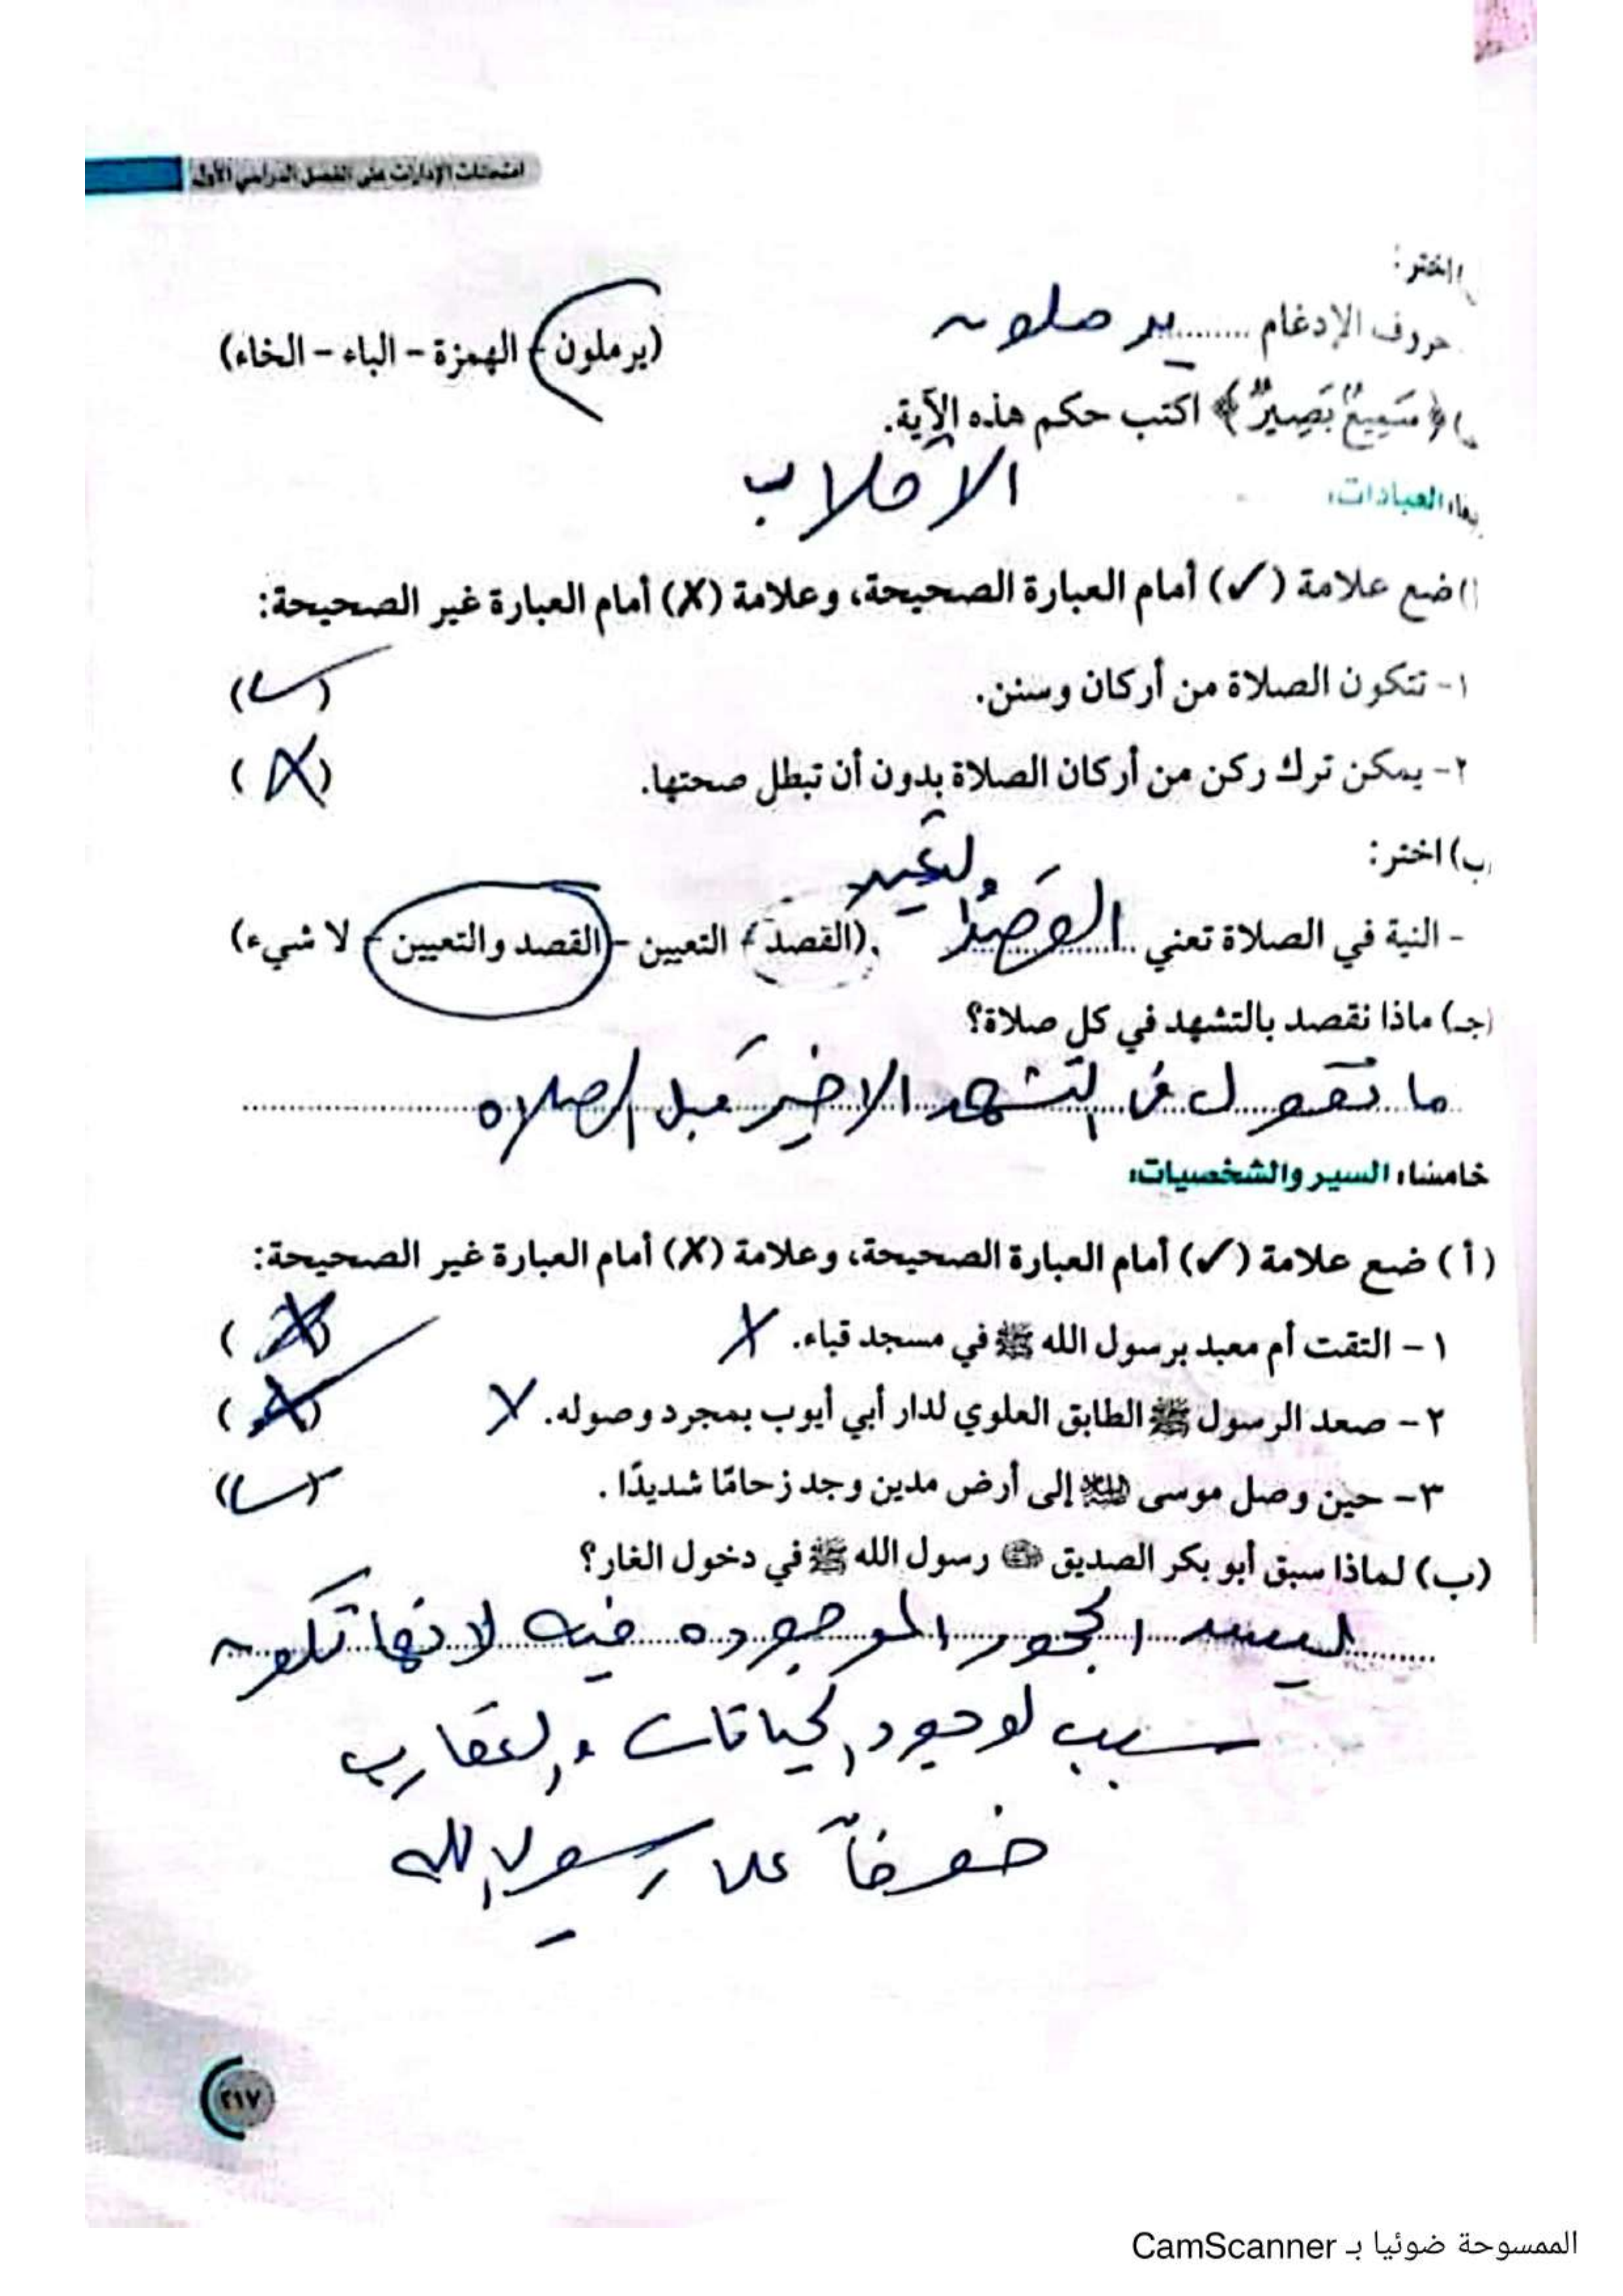 امتحانات الإدارات على الفصل الدراسي الأول
اختر:
حروف الإدغام ........ يرملون (يرملون - الهمزة - الباء - الخاء)
﴿سَمِيعٌ بَصِيرٌ﴾ اكتب حكم هذه الآية.
الاقلاب
العبادات:
ضع علامة (✓) أمام العبارة الصحيحة، وعلامة (✗) أمام العبارة غير الصحيحة:
١- تتكون الصلاة من أركان وسنن. (✓)
٢- يمكن ترك ركن من أركان الصلاة بدون أن تبطل صحتها. (✗)
ب) اختر:
- النية في الصلاة تعني ........ (القصد - التعيين - القصد والتعيين - لا شيء)
(جـ) ماذا نقصد بالتشهد في كل صلاة؟
ما نقول في التشهد الاخير قبل الصلاه
خامسًا: السير والشخصيات:
(أ) ضع علامة (✓) أمام العبارة الصحيحة، وعلامة (✗) أمام العبارة غير الصحيحة:
١- التقت أم معبد برسول الله ﷺ في مسجد قباء. ✗
٢- صعد الرسول ﷺ الطابق العلوي لدار أبي أيوب بمجرد وصوله. ✗
٣- حين وصل موسى عليه السلام إلى أرض مدين وجد زحامًا شديدًا. (✓)
(ب) لماذا سبق أبو بكر الصديق رضي الله عنه رسول الله ﷺ في دخول الغار؟
ليسد الجحور الموجوده فيه لانها تكون
سبب لوجود الحياقات والعقارب
خوفاً علا رسول الله
٢١٧
الممسوحة ضوئيا بـ CamScanner